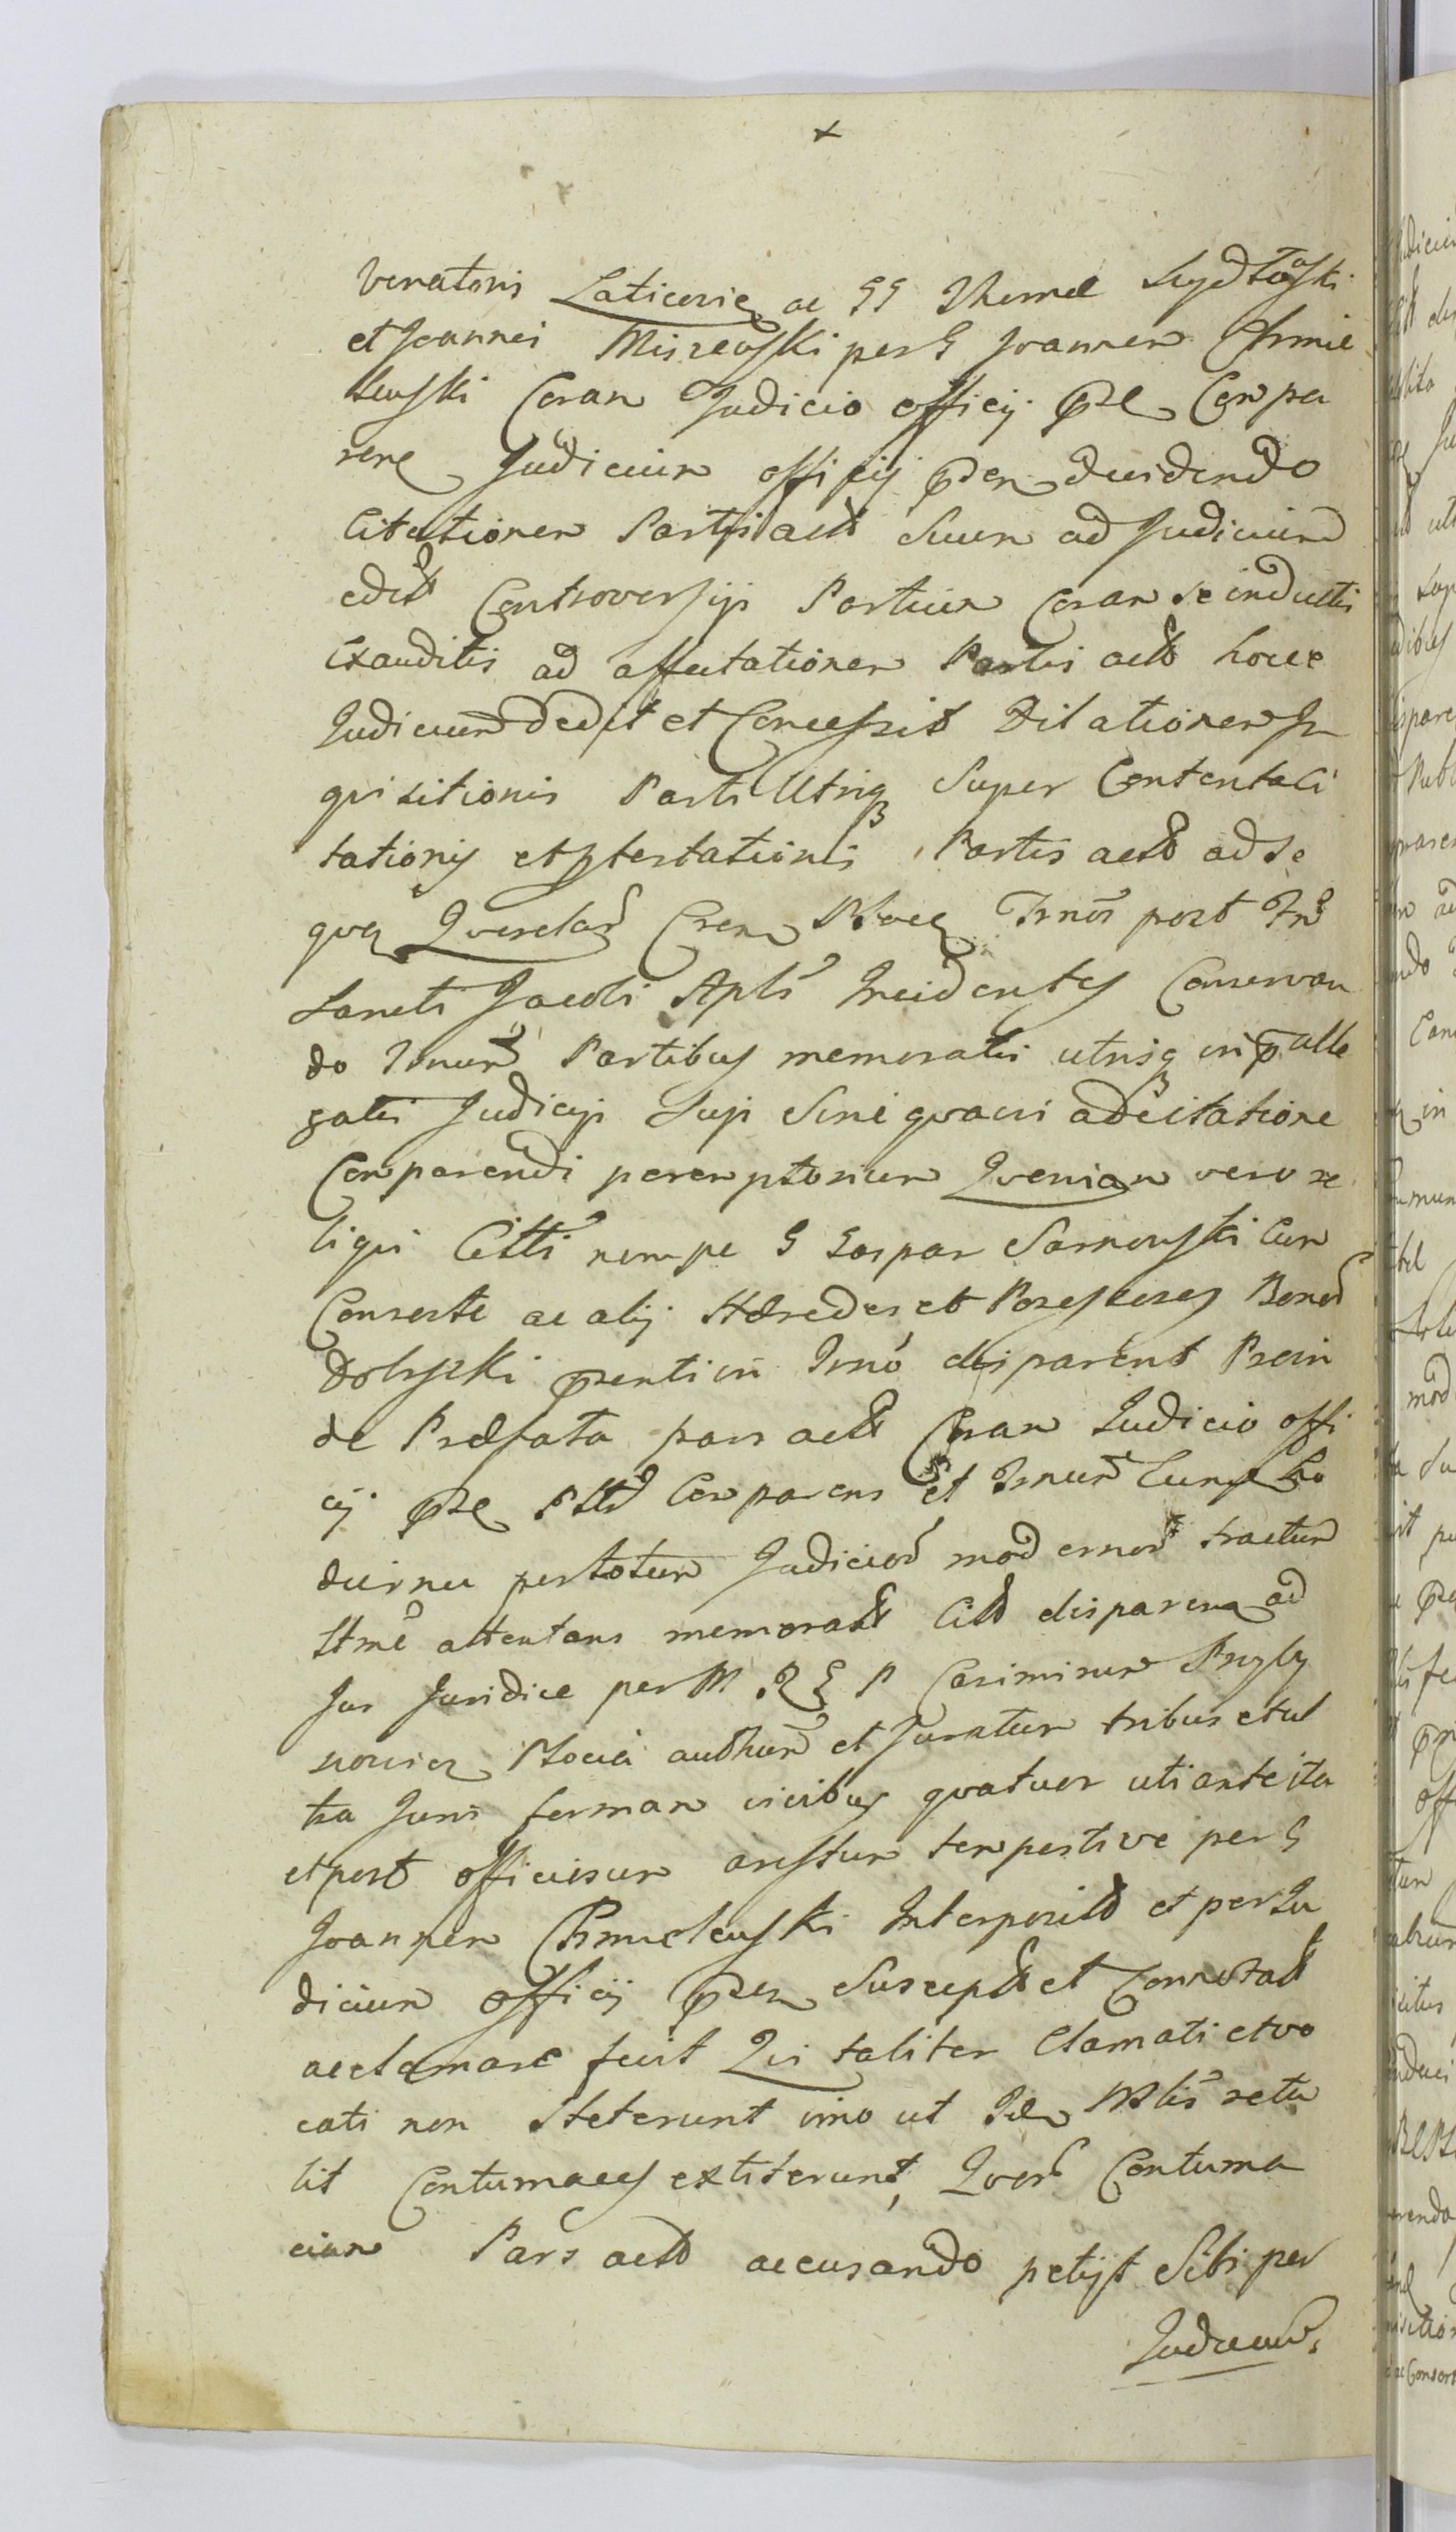 Venatoris Laticeviæ ac GG Thomæ
et Joannis Miszewski per G Joannem Chmie
lewski Coram Judicio Officij pnte Compa
rere Judicium officij pns decidendo
Citationem Partis act suum ad Judicium
edit Controversijs Partium Coram se inductis
Exauditis ad affectationem Partis act
Judicium dedit et Concessit Dilationem In
quisitionis Parti Utriq Super Contenta Ci
tationis et ptestationis Partis act ad se
quen Querelar Crem Ploceñ Trnos post Frm
Sancti Jacobi Apli Incidentes Conservan
do Trnum Partibus memoratis utrisq in palle
gatis Judicijs Suis Sine quavis adcitatione
Comparendi peremptorium Quoniam vero re
liqui Citti nempe G Gaspar Sarnowski Cum
Consorte ac alij Hæredes et Possessores Bonor
pnti in Trno disparent Proin
de Præfata pars act Coram Judicio offi
cij pnte Comparens et Trnum
per totum Judicior modernor tractum
ltme attentans memorat Citt disparen ad
Jus Juridice per M R G P Casimirum Przyby
authum et Juratum tribus et ul
tra Juris formam vicibus quatuor uti ante ita
et post officiosum arestum tempestive per G
Joannem Chmielewski Interposit et per Ju
dicium officij pns Suscept et Connotat
acclamare fecit Qui taliter Clamati et vo
cati non Steterunt imo ut Idem Mlis retu
lit Contumaces extiterunt, Quor Contuma
ciam Pars act accusando petijt Sibi per
Judicium.